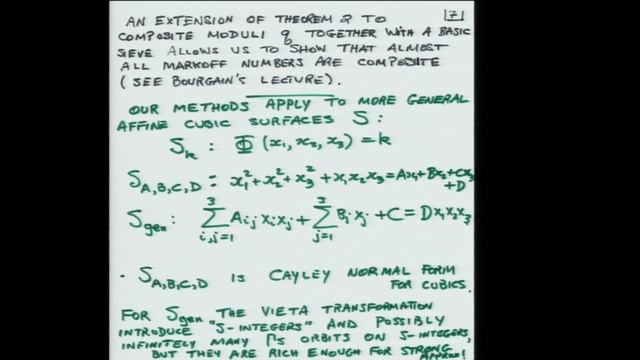 AN EXTENSION OF THEOREM 2 TO [7]
COMPOSITE MODULI q TOGETHER WITH A BASIC
SIEVE ALLOWS US TO SHOW THAT ALMOST
ALL MARKOFF NUMBERS ARE COMPOSITE
(SEE BOURGAIN'S LECTURE).
OUR METHODS APPLY TO MORE GENERAL
AFFINE CUBIC SURFACES S:
S_k : Φ(x₁, x₂, x₃) = k
S_A,B,C,D : x₁² + x₂² + x₃² + x₁x₂x₃ = Ax₁ + Bx₂ + Cx₃
+ D
S_gen : ∑_{i,j=1}^{3} A_ij x_i x_j + ∑_{j=1}^{3} B_j x_j + C = D x₁x₂x₃
· S_A,B,C,D IS CAYLEY NORMAL FORM
FOR CUBICS.
FOR S_gen THE VIETA TRANSFORMATION
INTRODUCE "S-INTEGERS" AND POSSIBLY
INFINITELY MANY Γ_S ORBITS ON S-INTEGERS,
BUT THEY ARE RICH ENOUGH FOR STRONG
APPROX!